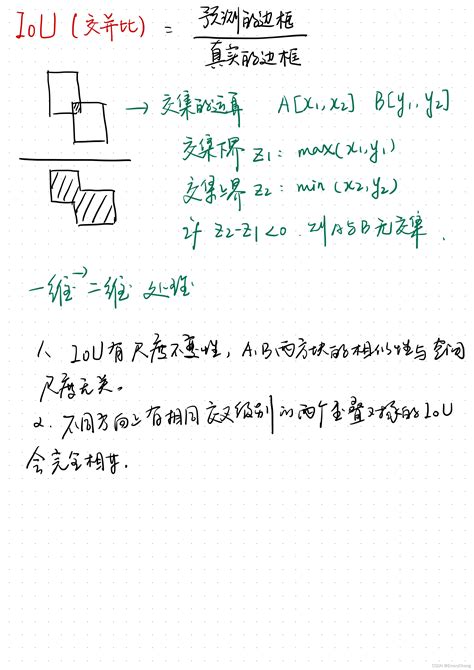 IoU (交并比) = 预测的边框
真实的边框
→ 交集的运算 A[x1, x2] B[y1, y2]
交集下界 z1: max(x1, y1)
交集上界 z2: min(x2, y2)
if z2-z1<0. 则A与B无交集.
一维→二维 处理
1. IoU有尺度不变性, A.B两方块的相似性与空间
尺度无关。
2. 不同方向上有相同交叉级别的两个重叠对象的IoU
会完全相等.